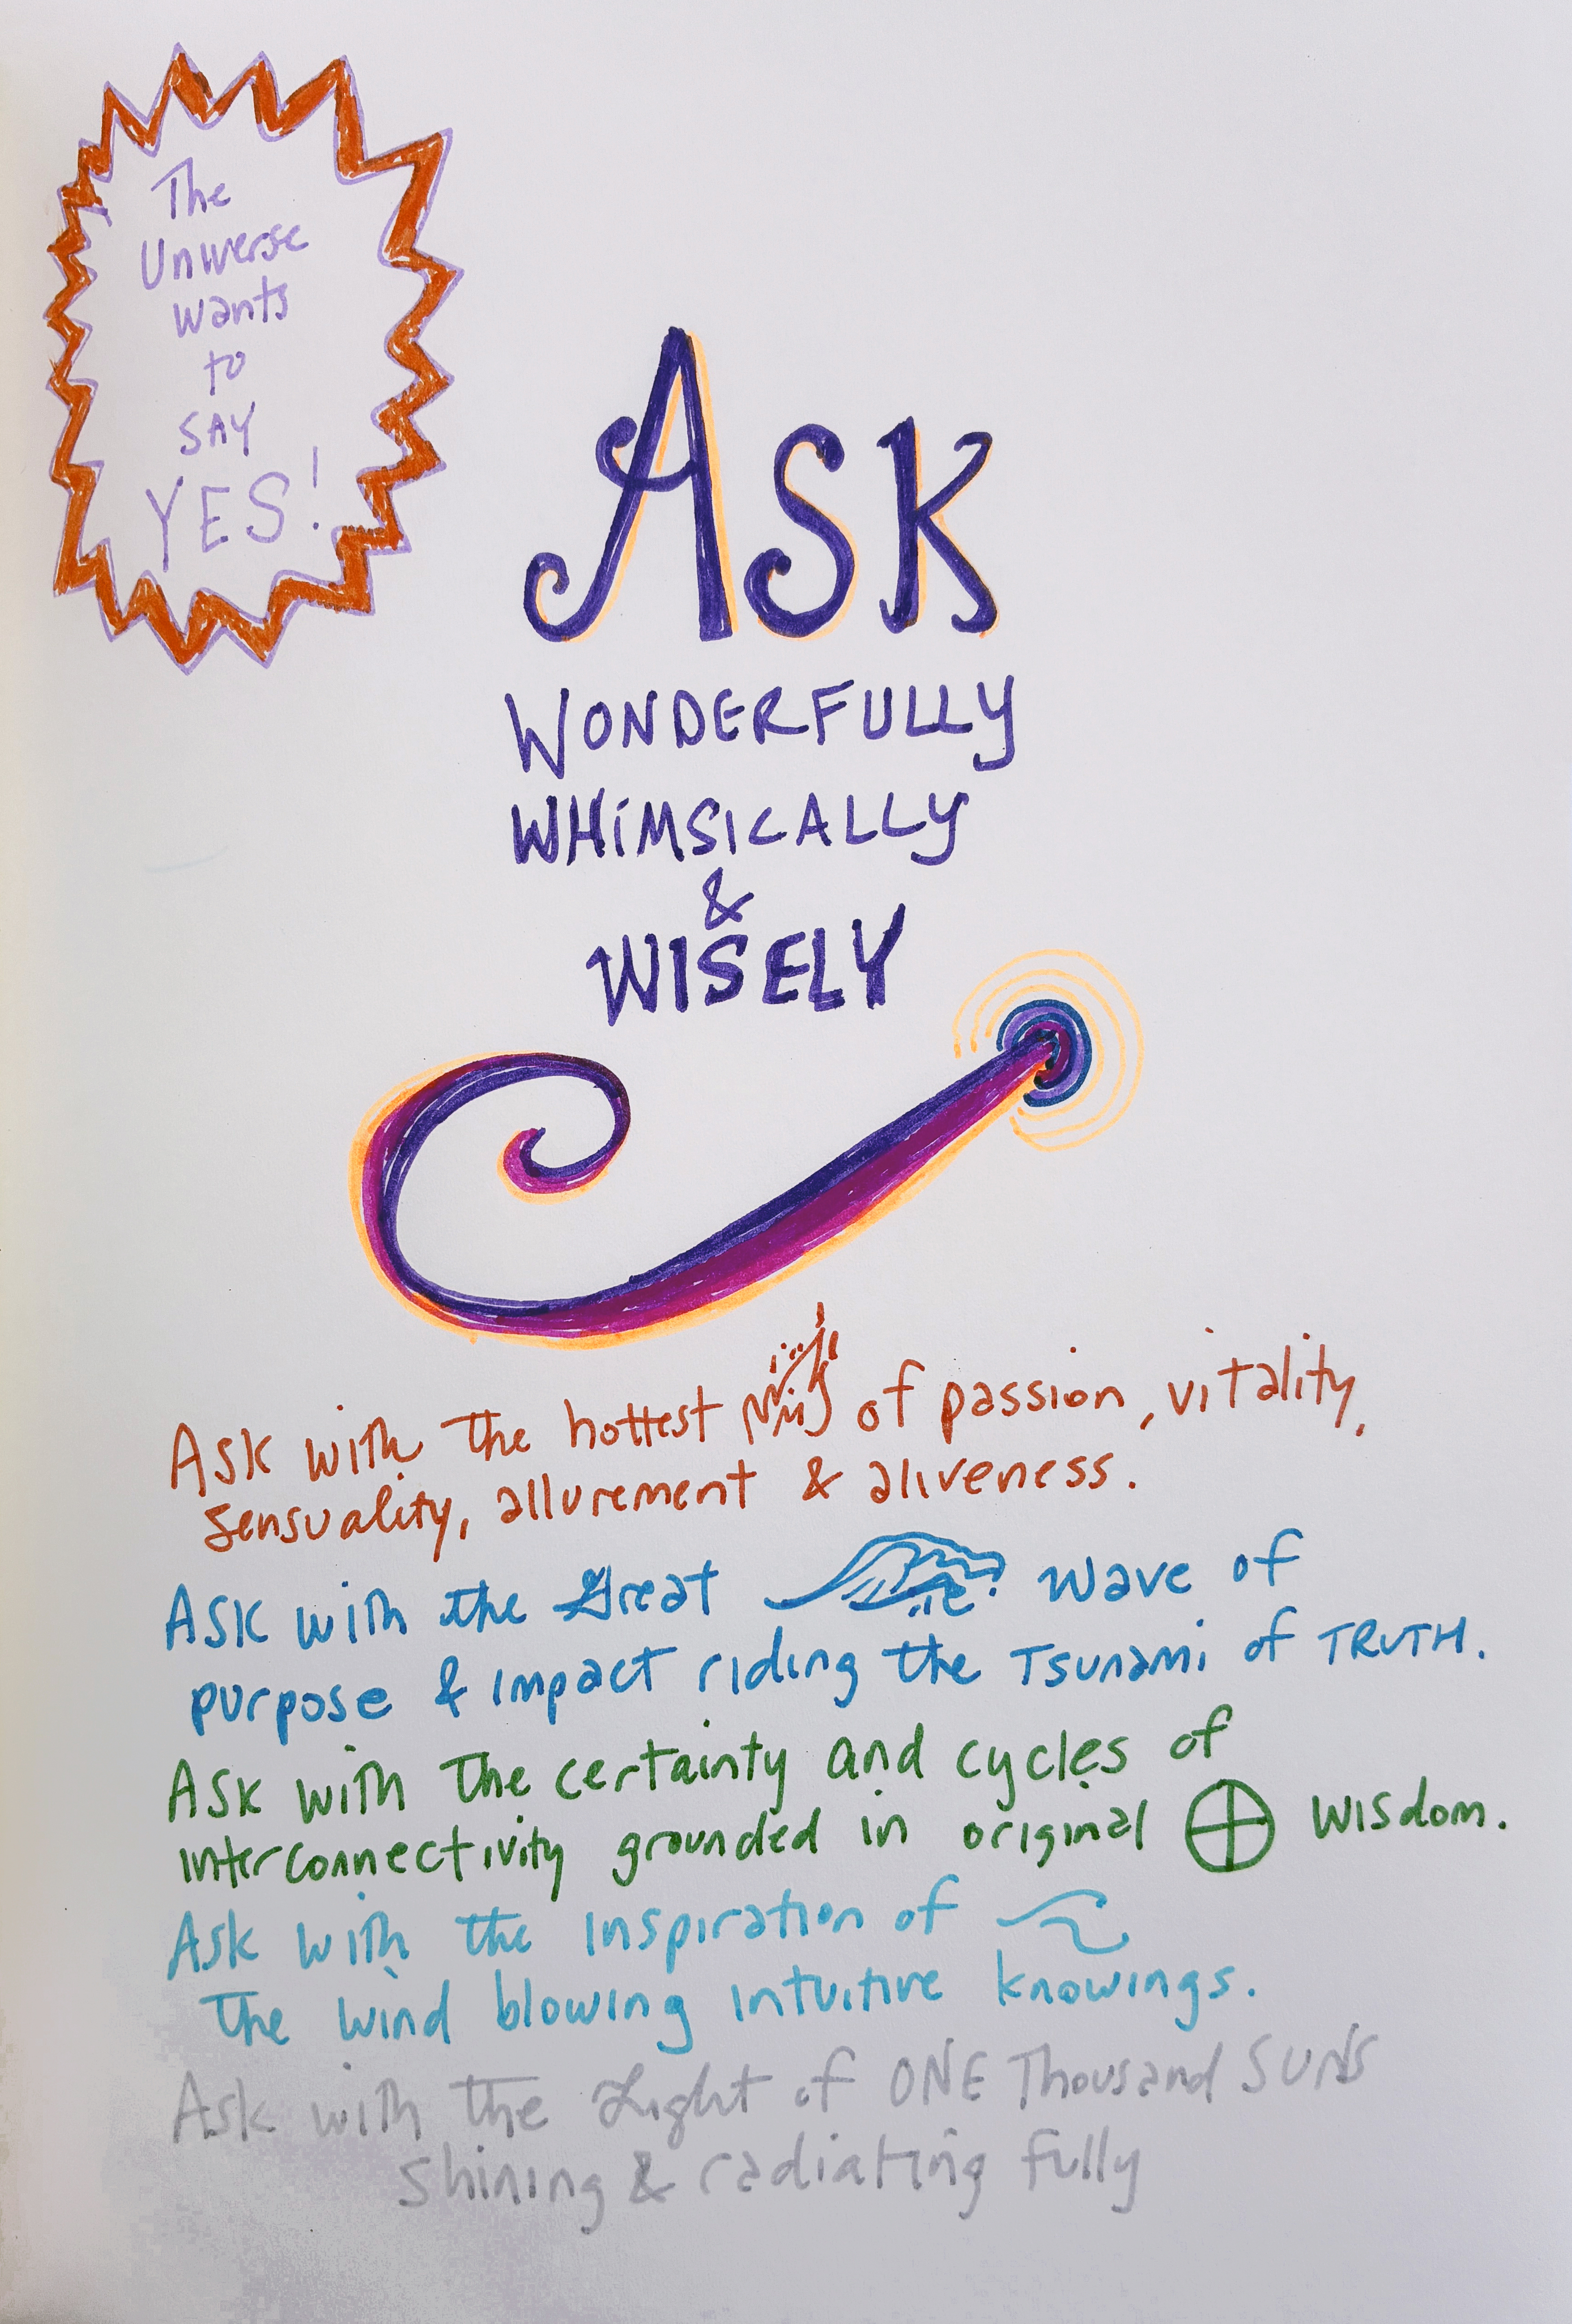 The
Universe
wants
to
SAY
YES!
ASK
WONDERFULLY
WHIMSICALLY
&
WISELY
Ask with the hottest of passion, vitality,
sensuality, allurement & aliveness.
Ask with the Great Wave of
purpose & impact riding the Tsunami of TRUTH.
Ask with the certainty and cycles of
interconnectivity grounded in original wisdom.
Ask with the inspiration of
the wind blowing intuitive knowings.
Ask with the Light of ONE Thousand SUNS
shining & radiating fully